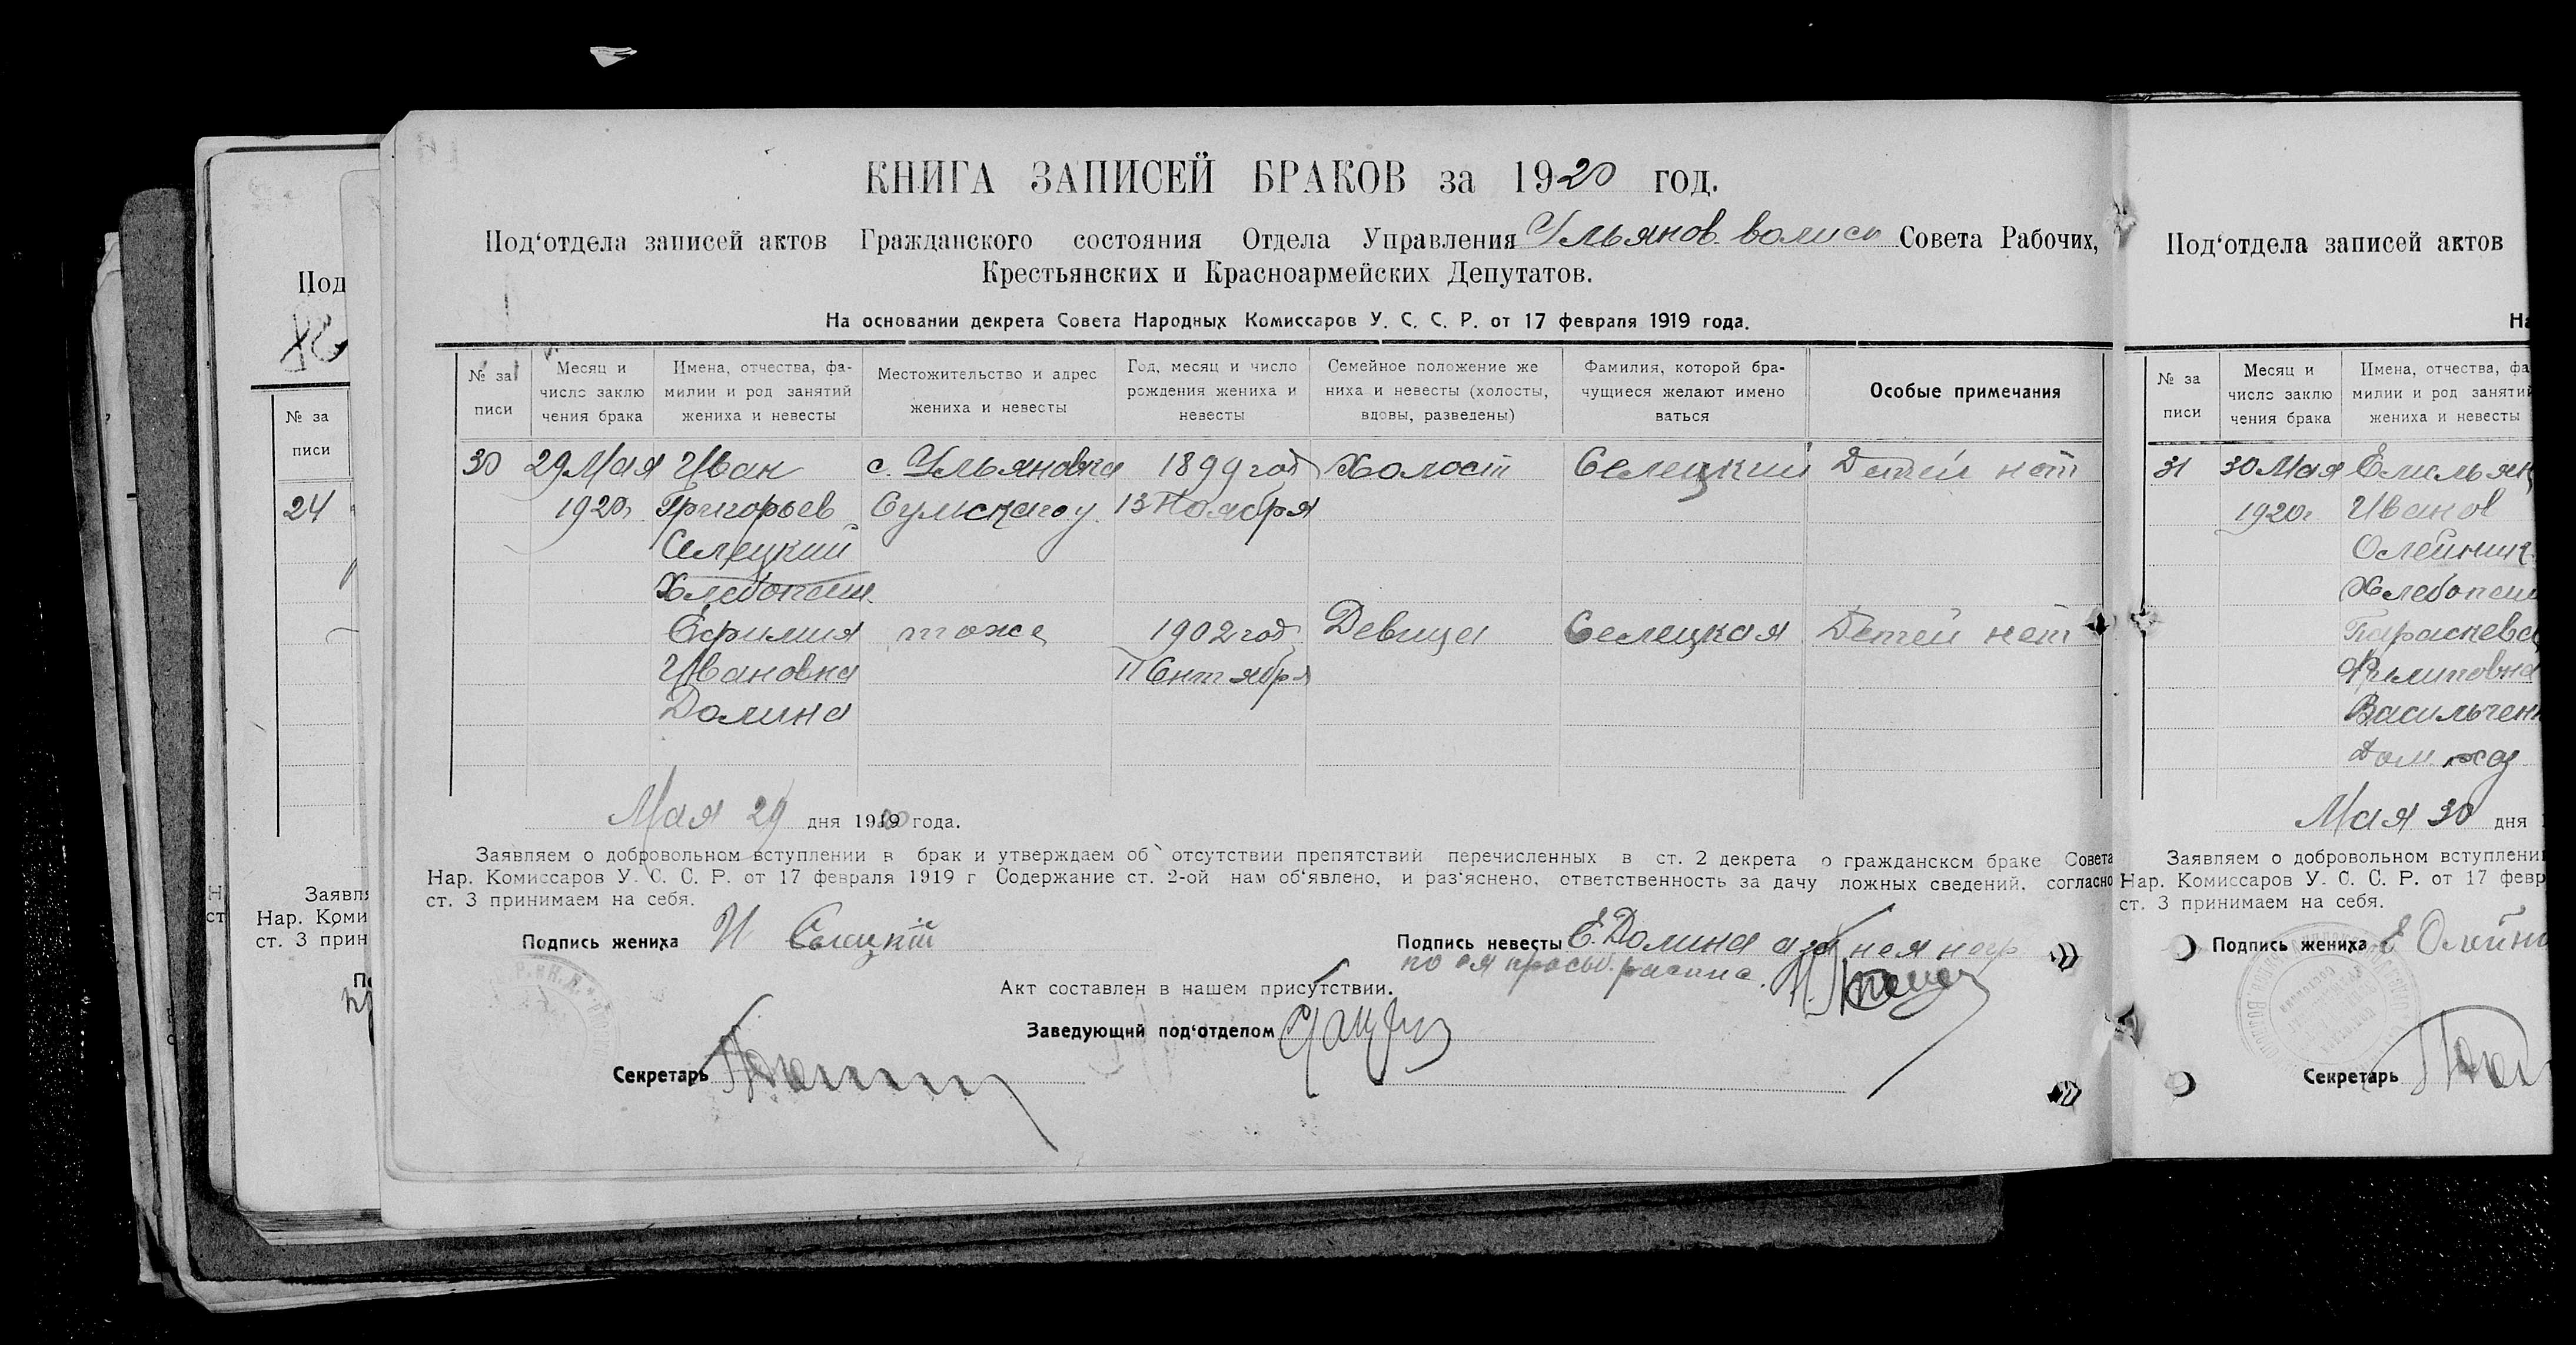 КНИГА ЗАПИСЕЙ БРАКОВ за 1920 год.
Под'отдела записей актов Гражданского состояния Отдела Управления Ульянов. волисп Совета Рабочих,
Крестьянских и Красноармейских Депутатов.
На основании декрета Совета Народных Комиссаров У. С. С. Р. от 17 февраля 1919 года.
№ записи
Месяц и число заключения брака
Имена, отчества, фамилии и род занятий жениха и невесты
Местожительство и адрес жениха и невесты
Год, месяц и число рождения жениха и невесты
Семейное положение жениха и невесты (холосты, вдовы, разведены)
Фамилия, которой брачущиеся желают именоваться
Особые примечания
30 29 Мая Иван с. Ульяновка 1899 год Холост Селецкий Детей нет
1920г Григорьев Сумского у. 13 Ноября
Селецкий
Хлебопаш.
Ефимия тоже 1902 год Девица Селецкая Детей нет
Ивановна 11 Сентября
Долина
Мая 29 дня 1920 года.
Заявляем о добровольном вступлении в брак и утверждаем об отсутствии препятствий перечисленных в ст. 2 декрета о гражданском браке Совета
Нар. Комиссаров У. С. С. Р. от 17 февраля 1919 г Содержание ст. 2-ой нам об'явлено, и раз'яснено, ответственность за дачу ложных сведений, согласно
ст. 3 принимаем на себя.
Подпись жениха И Селецкій
Подпись невесты Е. Долина а за нея негр
по ея просьб. распис.
Акт составлен в нашем присутствии.
Заведующий под'отделом
Секретарь
Под
№ записи
24
Заявля
Нар. Коми
ст. 3 прин
Под'отдела записей актов
На
№ записи
Месяц и число заключения брака
Имена, отчества, фа
милии и род занятий
жениха и невесты
31 30 Мая Емельян
1920г Иванов
Олейник
Хлебопаш
Параскева
Филиповна
Васильчен
Дом. хоз
Мая 30 дня
Заявляем о добровольном вступлени
Нар. Комиссаров У. С. С. Р. от 17 февр
ст. 3 принимаем на себя.
Подпись жениха Е Олейни
Секретарь